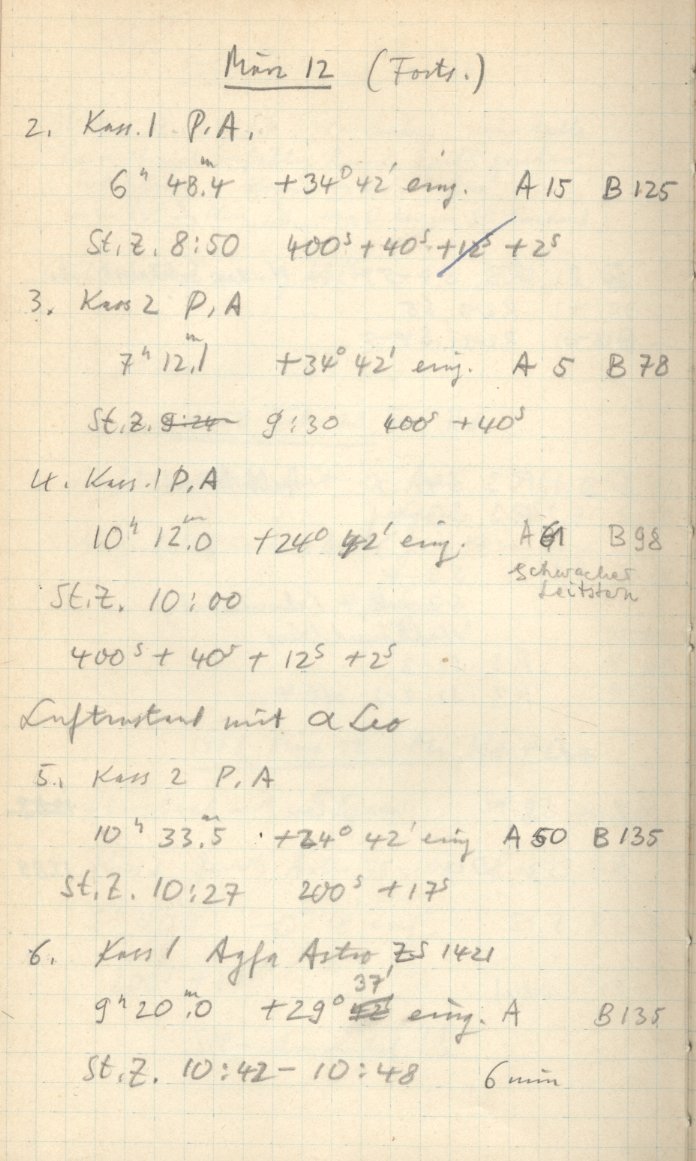 März 12 (Forts.)
2. Kass. 1 P.A.
6ʰ 48ᵐ.4 +34° 42' eing. A 15 B 125
St.Z. 8:50 400ˢ + 40ˢ + 12ˢ + 2ˢ
3. Kass 2 P,A
7ʰ 12ᵐ.1 +34° 42' eing. A 5 B 78
St.Z. 9:24 9:30 400ˢ + 40ˢ
4. Kass. 1 P,A
10ʰ 12ᵐ.0 +24° 42' eing. A B 98
schwacher
Leitstern
St.Z. 10:00
400ˢ + 40ˢ + 12ˢ + 2ˢ
Luftzustand mit α Leo
5. Kass 2 P,A
10ʰ 33ᵐ.5 +24° 42' eing A 50 B 135
St.Z. 10:27 200ˢ + 17ˢ
6. Kass 1 Agfa Astro ZS 1421
37'
9ʰ 20ᵐ.0 +29° 42 eing. A B 135
St.Z. 10:42 – 10:48 6 min